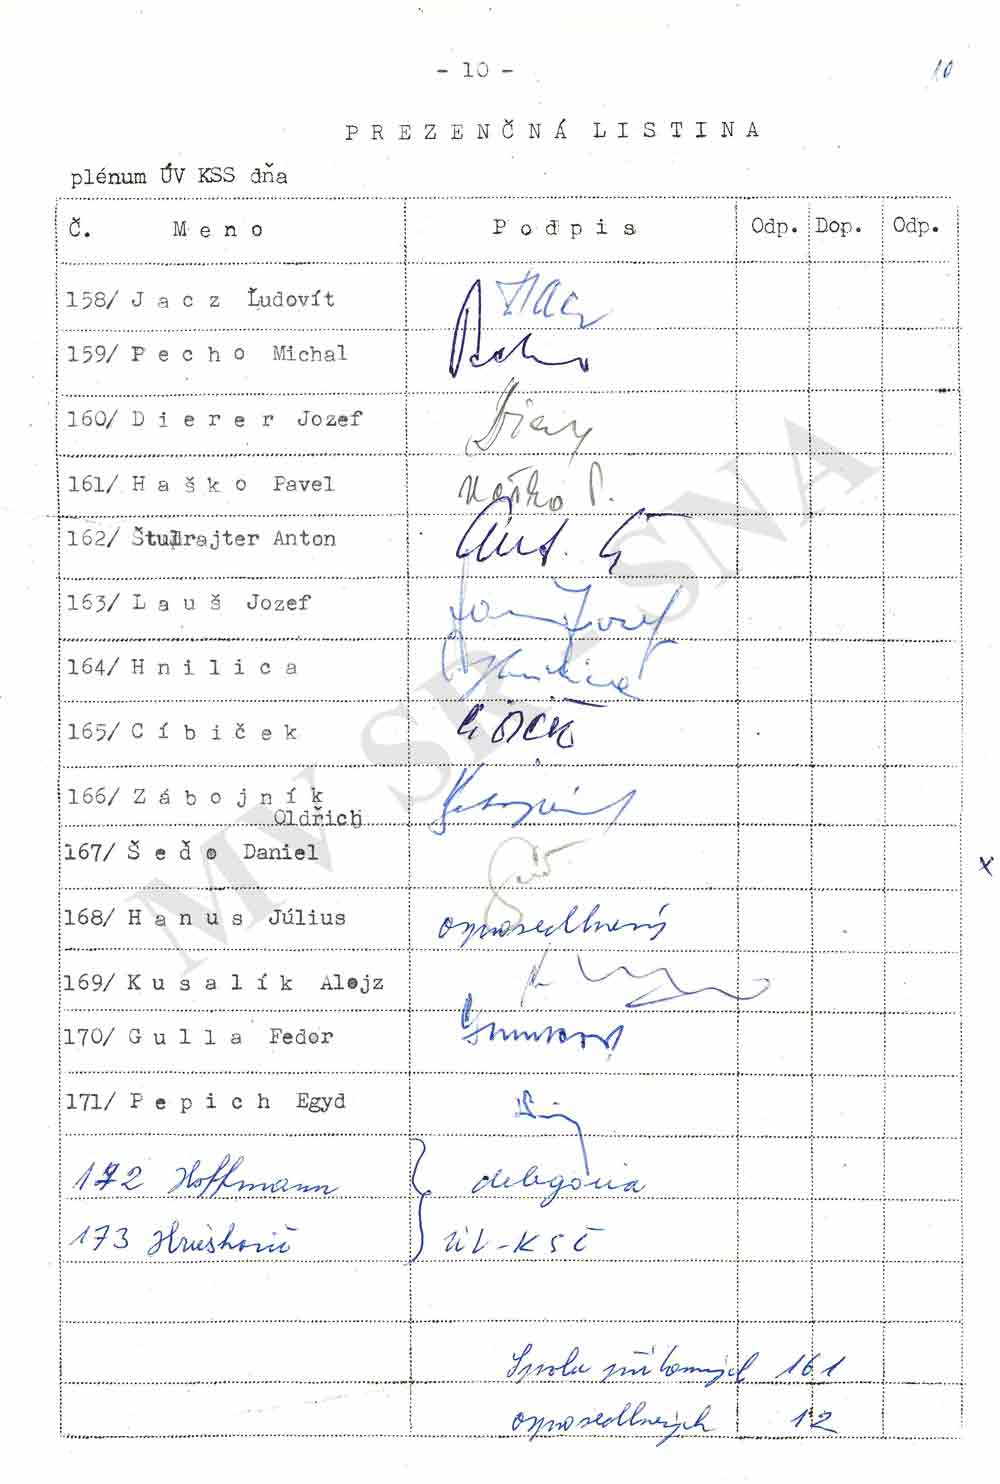 - 10 -
10
PREZENČNÁ LISTINA
plénum ÚV KSS dňa
Č. Meno Podpis Odp. Dop. Odp.
158/ Jacz Ľudovít
159/ Pecho Michal Pecho
160/ Dierer Jozef
161/ Haško Pavel Haško P.
162/ Štulrajter Anton
163/ Lauš Jozef Lauš Jozef
164/ Hnilica Hnilica
165/ Cíbiček
166/ Zábojník
Oldřich
167/ Šeďo Daniel
x
168/ Hanus Július ospravedlnený
169/ Kusalík Alojz
170/ Gulla Fedor
171/ Pepich Egyd
172 Hoffmann delegácia
173 Hruškovič ÚV-KSČ
Spolu prítomných 161
ospravedlnených 12
MV SR - SNA